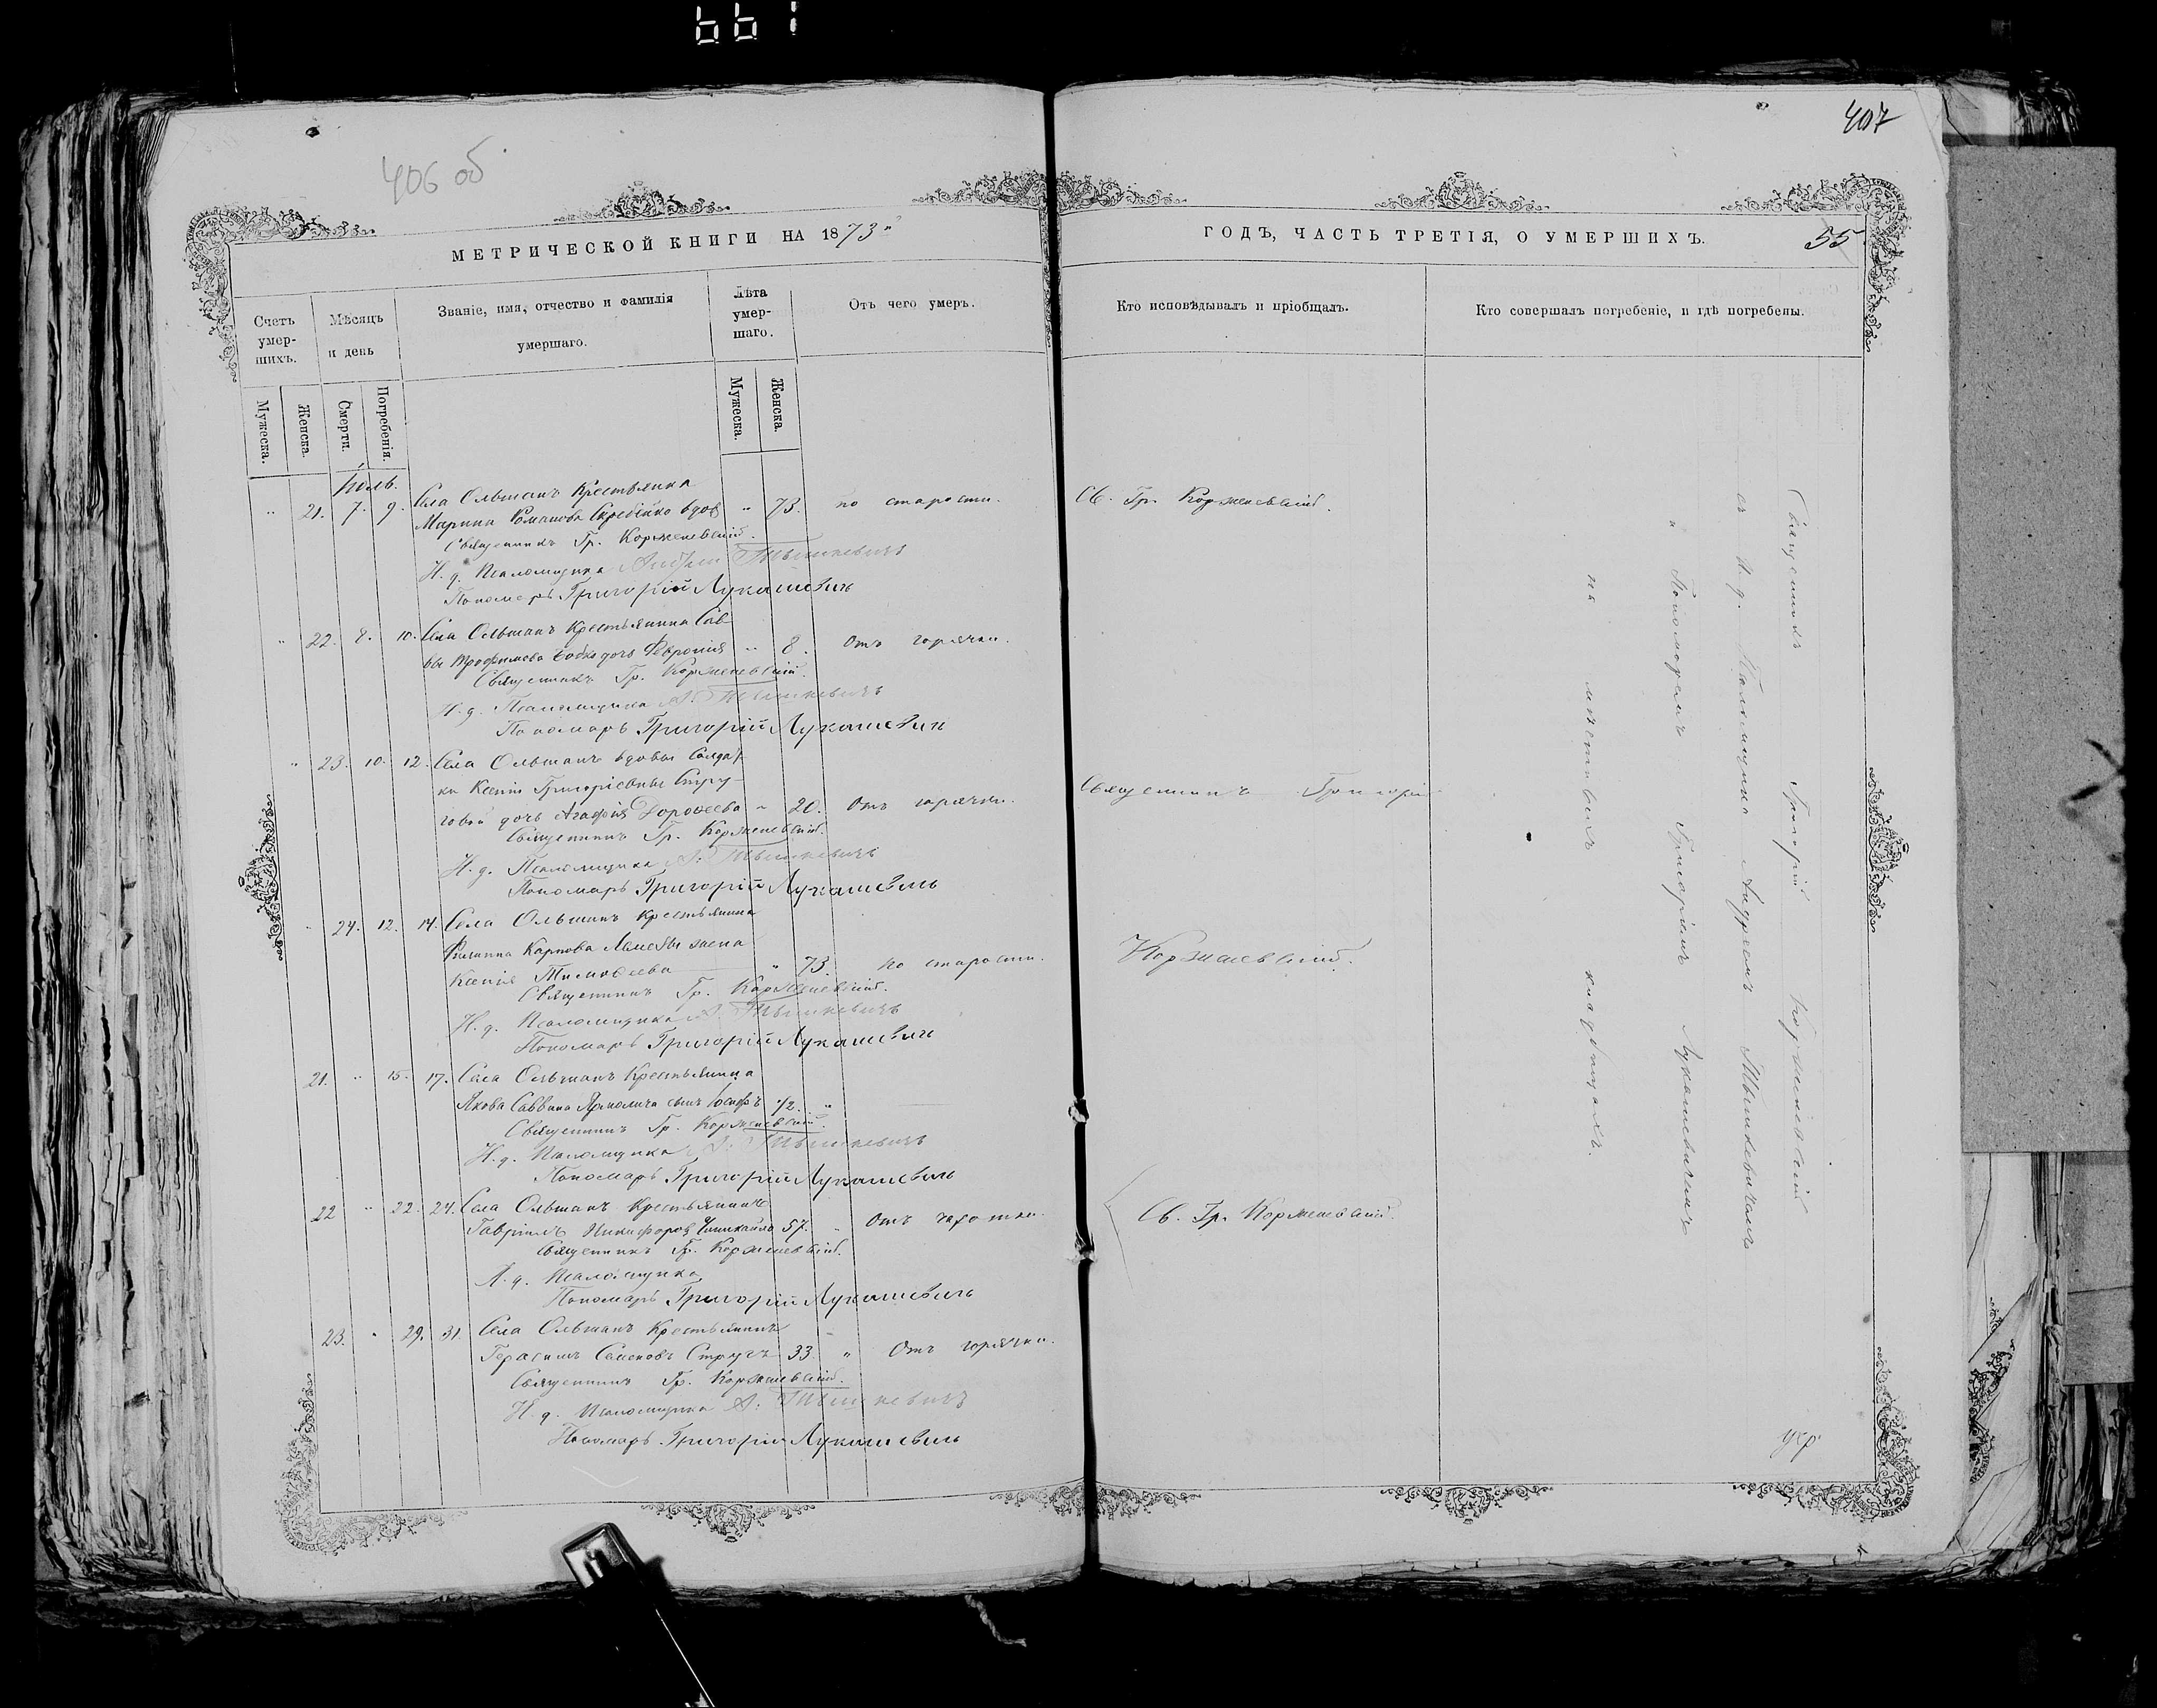 661
406 об
407
МЕТРИЧЕСКОЙ КНИГИ НА 1873
ГОДЪ, ЧАСТЬ ТРЕТІЯ, О УМЕРШИХЪ.
55
Счетъ умер-шихъ.
Мѣсяцъ и день
Званіе, имя, отчество и фамилія умершаго.
Лѣта умер-шаго.
Отъ чего умеръ.
Кто исповѣдывалъ и пріобщалъ.
Кто совершалъ погребеніе, и гдѣ погребены.
Мужеска.
Женска.
Смерти.
Погребенія.
Мужеска.
Женска.
Іюль.
" 21. 7. 9. Села Ольшанъ Крестьянка
Марина Романова вдова " 73. по старости. Св. Гр. Корженевскій.
Священникъ Гр. Корженевскій.
И. д. Псаломщика Андрей Тышкевичъ
Пономарь Григорій Лукашевичъ
" 22. 8. 10. Села Ольшанъ Крестьянина Сав-
вы Трофимова дочь Феврония " 8. Отъ горячки.
Священникъ Гр. Корженевскій.
И. д. Псаломщика А. Тышкевичъ
Пономарь Григорій Лукашевичъ
" 23. 10. 12. Села Ольшанъ вдовы Солдат-
ки Ксеніи Григоріевны Стру-
говой дочь Агафія Дорофеева " 20. Отъ горячки. Священникъ Григорій
Священникъ Гр. Корженевскій.
И. д. Псаломщика А. Тышкевичъ
Пономарь Григорій Лукашевичъ
" 24. 12. 14. Села Ольшанъ Крестьянина
Филиппа Карпова жена
Ксенія Тимофеева " 73. по старости. Корженевскій.
Священникъ Гр. Корженевскій.
И. д. Псаломщика А. Тышкевичъ
Пономарь Григорій Лукашевичъ
21. " 15. 17. Села Ольшанъ Крестьянина
Якова Саввина сынъ Іосифъ 1/2. "
Священникъ Гр. Корженевскій.
И. д. Псаломщика А. Тышкевичъ
Пономарь Григорій Лукашевичъ
22 " 22. 24. Села Ольшанъ Крестьянинъ
Гавріилъ Никифоровъ 57. " Отъ чахотки. Св. Гр. Корженевскій.
Священникъ Гр. Корженевскій.
И. д. Псаломщика
Пономарь Григорій Лукашевичъ
23. " 29. 31. Села Ольшанъ Крестьянинъ
Герасимъ Семеновъ Стругъ 33 " Отъ горячки.
Священникъ Гр. Корженевскій.
И. д. Псаломщика А. Тышкевичъ
Пономарь Григорій Лукашевичъ
Священникъ Григорій Корженевскій
съ И. д. Псаломщика Андреемъ Тышкевичемъ
" Пономаремъ Григоріемъ Лукашевичемъ
на мѣстныхъ кладбищахъ.